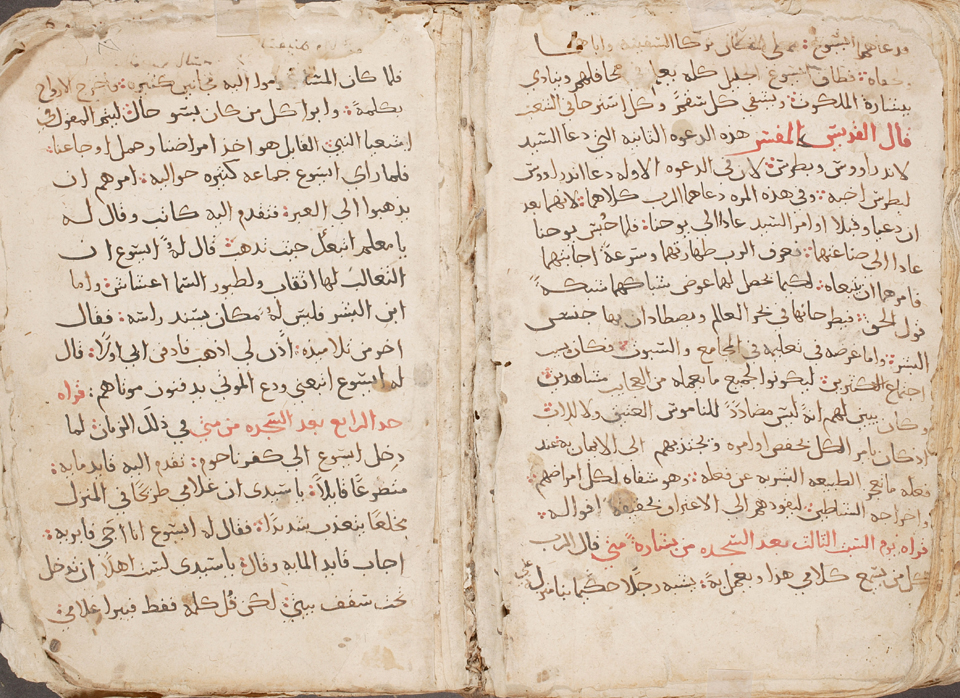 ودعاهما ايسوع فمن الان تركا السفينة واباهما
فطاف ايسوع الجليل كله يعلم في محافلهم وينادي
ببشارة الملكوت ويشفي كل سقم وكل استرخا في الشعب
قال القديس المفسر هذه الدعوه الثانيه التي دعا السيد
لاندراووس وبطرس لان في الدعوه الاوله دعا اندراوس
لبطرس اخيه وفي هذه المره دعاهما الرب كلاهما لانهما بعد
ان دعيا وقبلا اوامر السيد عادا الى يوحنا فلما حبس يوحنا
عادا الى صناعتهما فعرف الرب طهارتهما وسرعة اجابتهما
فامرهما ان يتبعاه لكما يحصل لهما عوض شباكهما شبكه
قول الحق فيطرحانها في بحر العالم ويصطادان بها جنس
البشر واما غرضه في تعليمه في المجامع والسبوت وكان بسبب
اجتماع الكثيرين ليكونوا الجميع ما يعمله من العجايب مشاهدين
وكان يبين لهم انه ليس مضادد للناموس العتيق ولا للذات
اذ كان يامر الكل بحفض اوامره ويجذبهم الى الايمان به عند
فعله ما تعجز الطبيعه البشريه عن فعله وهو شفاه لكل امراضهم
واخراجه الشياطين ليقودهم الى الاعتراف بحقيقة اقواله
قراه يوم السبت الثالث بعد السجده من بشارة متي قال الرب
كل من يسمع كلامي هذا ويعمل به يشبه رجلا حكيما بنا منزله
فلما كان المسا قدموا اليه مجانين كثيره فاخرج الارواح
بكلمة وابرا كل من كان بسو حال ليتم المقول في
اشعيا النبي القايل هو اخذ امراضنا وحمل اوجاعنا
فلما راى ايسوع جماعه كثيره حواليه امرهم ان
يذهبوا الى العبر فتقدم اليه كاتب وقال له
يا معلم اتبعك حيث تذهب قال له ايسوع ان
الثعالب لها اثقاب ولطيور السما اعشاش واما
ابن البشر فليس له مكان يسند راسه فقال
اخر من تلاميذه اذن لي اذهب فادفن ابي اولا قال
له ايسوع اتبعني ودع الموتى يدفنون موتاهم قراه
حد الرابع بعد السجده من متي في ذلك الزمان لما
دخل ايسوع الى كفرناحوم تقدم اليه قايد مايه
متضرعا قايلا يا سيدي ان غلامي طريحا في المنزل
مخلعا يتعذب شديدا فقال له ايسوع انا اجي فابريه
اجاب قايد المايه وقال يا سيدي لست اهلا ان تدخل
تحت سقف بيتي لكن قل كلمه فقط فيبرا غلامي